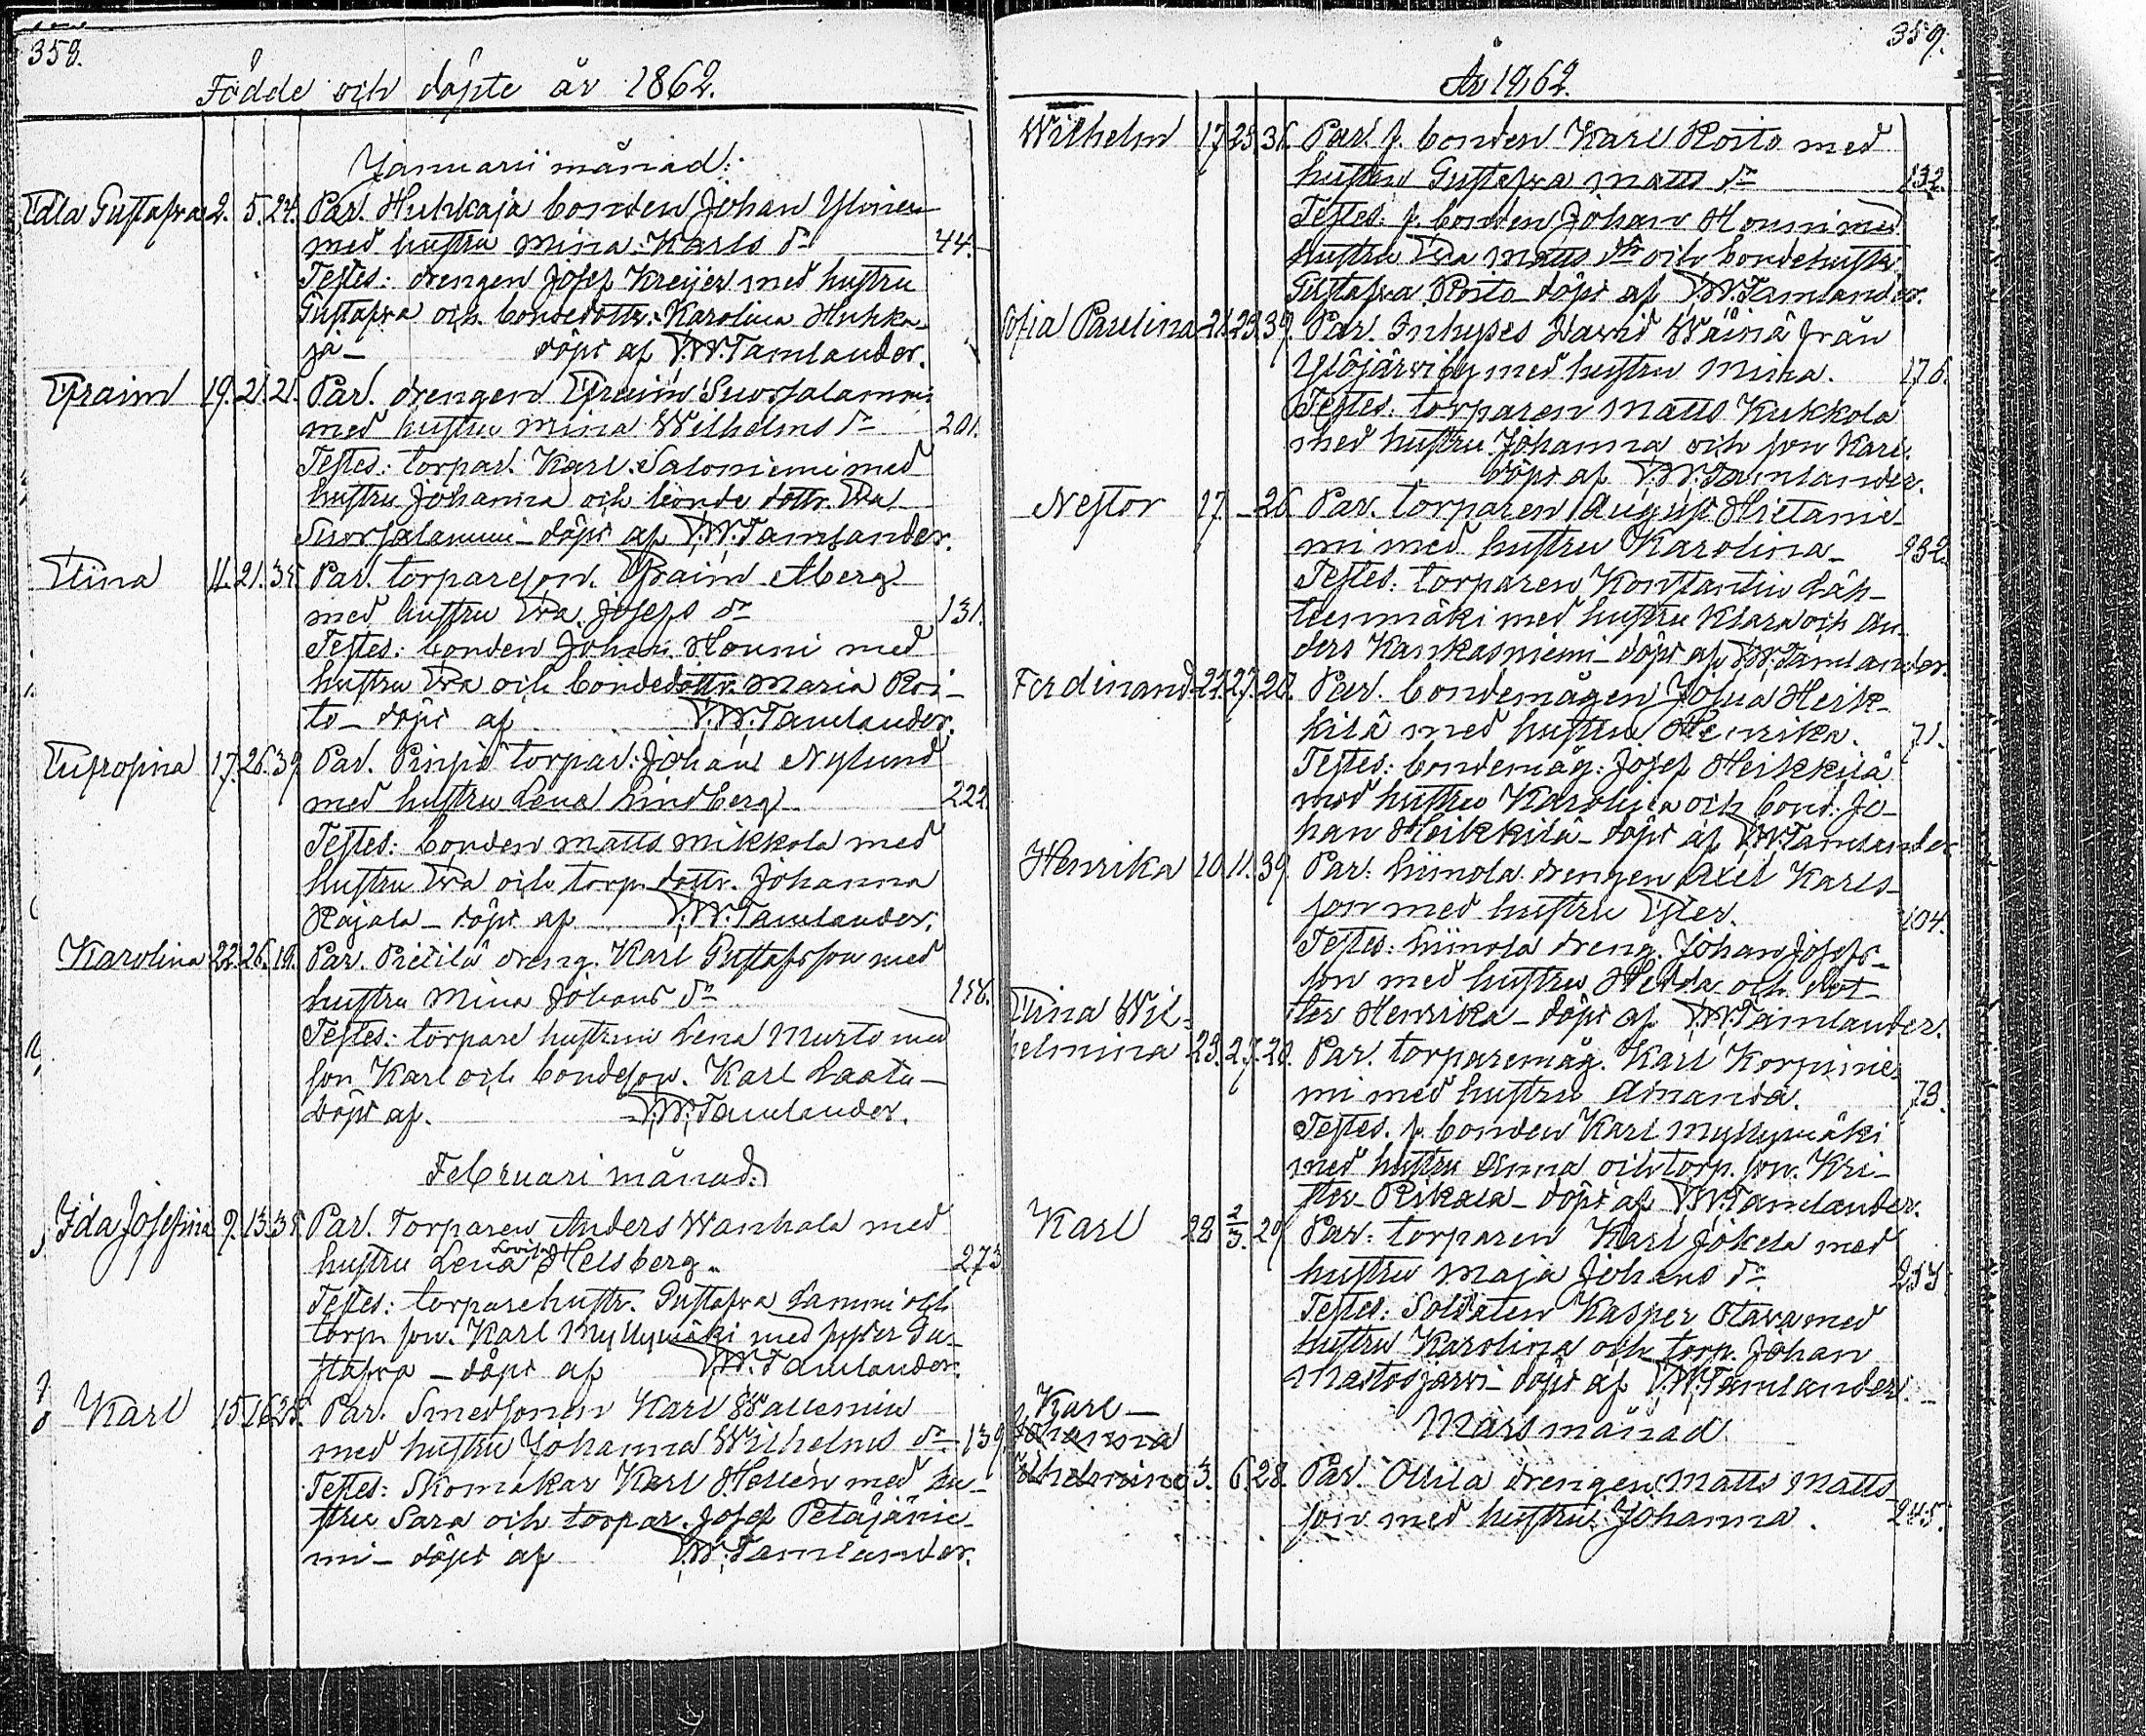 358.
Födde och döpte år 1862.
Januarii månad:
Edla Gustafva 2. 5. 24. Par. Huhkaja bonden Johan Ylinen
med hustru Mina Karls dr 44.
Testes: drengen Josef Kreijer med hustru
Gustafva och bondedottr. Karolina Huhka-
ja döpt af V.W.Tamlander.
Efraim 19. 21. 21. Par. drengen Efraim Suorsalammi
med hustru Mina Wilhelms dr 201.
Testes: torpar. Karl Saloniemi med
hustru Johanna och bonde dottr. Eva
Suorsalammi döpt af V.W.Tamlander.
Elina 11. 21. 35. Par. torpareson. Efraim Åberg
med hustru Eva Josefs dr 131.
Testes: bonden Johan Honni med
hustru Eva och bondedottr. Maria Roi-
to döpt af V.W.Tamlander.
Eufrosina 17. 26. 39 Par. torpar: Johan Nylund
med hustru Lena Lindberg 222.
Testes: bonden Matts Mikkola med
hustru Eva och torp. dottr. Johanna
Rajala döpt af V.W.Tamlander.
Karolina 22. 26. 19. Par. Pietilä dreng. Karl Gustafsson med
hustru Mina Johans dr 158.
Testes: torpare hustrun Lena Murto med
son Karl och bondeson. Karl Laatu
döpt af V.W.Tamlander.
Februari månad.
Ida Josefina 9. 13. 35. Par. Torparen Anders Wanhala med
hustru Lena Lovisa Helsberg 273
Testes: torparehustr. Gustafva Lammi och
torp. son. Karl Myllymäki med syster Gu-
stafva döpt af V.W.Tamlander.
Karl 15. 16. 25. Par. Smedsonen Karl Wallenius
med hustru Johanna Wilhelms dr 139.
Testes: Skomakar Karl Hellén med hu-
stru Sara och torpar. Josef Petäjänie-
mi döpt af V.W.Tamlander.
359.
År 1862.
Wilhelm 17. 25. 36. Par. f. bonden Karl Roito med
hustru Gustafva Matts dr 132.
Testes: f. bonden Johan Honni med
hustru Eva Matts dr och bondehustr.
Gustafva Roito döpt af V.W.Tamlander.
Sofia Paulina 21. 23. 39. Par. Inhyses David Wäinä från
Ylöjärvi by med hustru Mina. 176.
Testes: torparen Matts Kukkola
med hustru Johanna och son Karl.
döpt af V.W.Tamlander.
Nestor 17. 26 Par. torparen August Hietanie-
mi med hustru Karolina 232.
Testes: torparen Konstantin Läh-
teenmäki med hustru Klara och An-
ders Kankasniemi döpt af V.W.Tamlander.
Ferdinand 22. 27. 28. Par. bondemågen Josua Heik-
kilä med hustru Henrika. 71.
Testes: bondemåg: Josef Heikkilä
med hustru Karolina och bond: Jo-
han Heikkilä döpt af V.W.Tamlander
Henrika 10. 11. 39. Par: Liinola drengen Axel Karls-
son med hustru Ester. 104.
Testes: Liinola dreng. Johan Josefs-
son med hustru Hedda och dot-
ter Henrika döpt af V.W.Tamlander.
Elina Wil-
helmina 23. 27. 20. Par. torparemåg. Karl Korpinie-
mi med hustru Amanda. 73.
Testes. f. bonden Karl Myllymäki
med hustru Anna och torp. son. Kri-
ster Rikala döpt af V.W.Tamlander.
Karl 28 2/3. 29 Par: torparen Karl Jokela med
hustru Maja Johans dr 257.
Testes: Soldaten Kasper Otava med
hustru Karolina och torp. Johan
Mastosjärvi döpt af V.W.Tamlander.
Karl
Mars månad
Johanna
Wilhelmina 3. 6. 28. Par. Ollila drengen Matts Matts
son med hustru Johanna. 245.